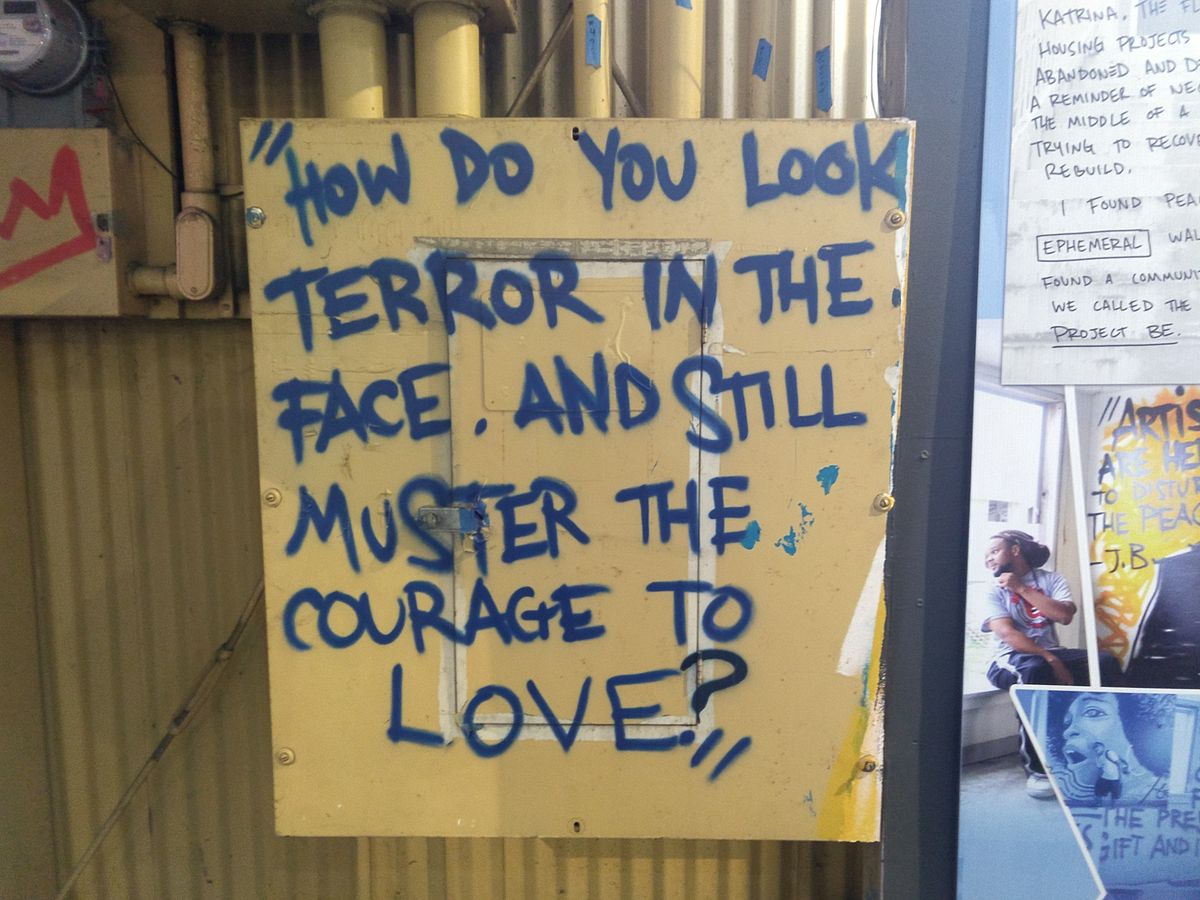 "HOW DO YOU LOOK
TERROR IN THE
FACE. AND STILL
MUSTER THE
COURAGE TO
LOVE?"
KATRINA. THE
HOUSING PROJECTS
ABANDONED AND
A REMINDER OF
THE MIDDLE OF A
TRYING TO
REBUILD.
I FOUND
EPHEMERAL
FOUND A
WE CALLED THE
PROJECT BE.
"ARTIS
ARE HE
TO DISTUR
THE PEAC
-J.B.
THE PRE
GIFT AND